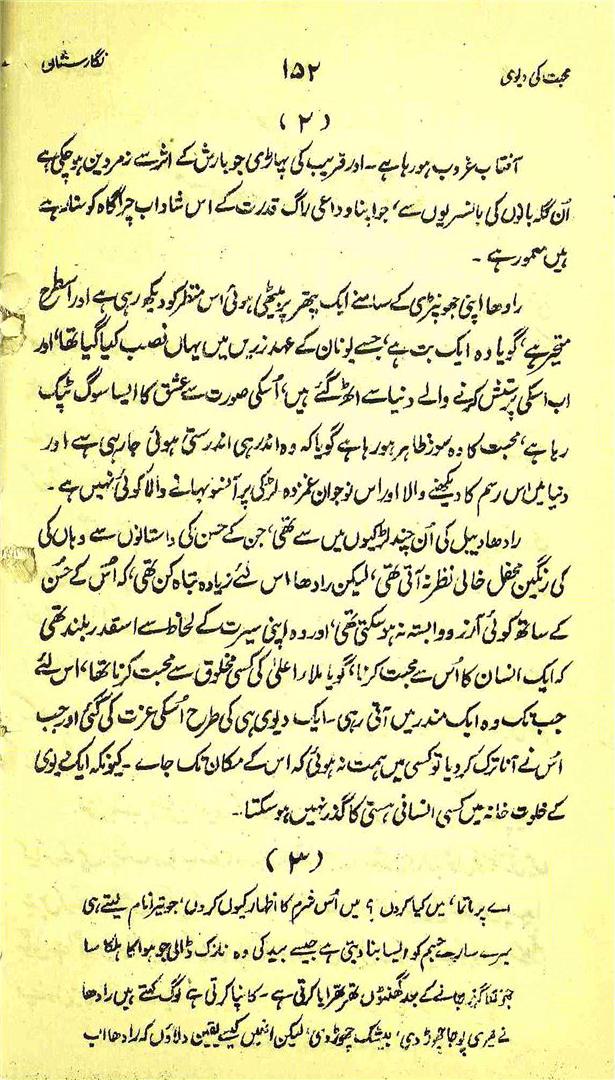 محبت کی دیوی ۱۵۲ نگارستان
(۲)
آفتاب غروب ہورہا ہے۔ اور قریب کی پہاڑی جو بارش کے اثر سے زمردین ہوچکی ہے
اُن گلہ بانوں کی بانسریوں سے، جو اپنا وداعی راگ قدرت کے اس شاداب چراگاہ کو سنا رہے
ہیں معمور ہے۔
رادھا اپنی جھونپڑی کے سامنے ایک پتھر پر بیٹھی ہوئی اس منظر کو دیکھ رہی ہے اور اسطرح
متحیر ہے، گویا وہ ایک بت ہے، جسے یونان کے عہد زریں میں یہاں نصب کیا گیا تھا، اور
اب اسکی پرستش کرنے والے دنیا سے اٹھ گئے ہیں، اُسکی صورت سے عشق کا ایسا سوگ ٹپک
رہا ہے، محبت کا وہ سوز ظاہر ہورہا ہے گویا کہ وہ اندر ہی اندر رستی ہوئی جارہی ہے اور
دنیا میں اس رسم کا دیکھنے والا اور اس نوجوان غمزدہ لڑکی پر آنسو بہانے والا کوئی نہیں ہے۔
رادھا دیبل کی اُن چند لڑکیوں میں سے تھی، جن کے حسن کی داستانوں سے وہاں کی
کی رنگین محفل خالی نظر نہ آتی تھی، لیکن رادھا، اس لئے زیادہ تباہ کن تھی، کہ اُس کے حُسن
کے ساتھ کوئی آرزو وابستہ نہ ہوسکتی تھی، اور وہ اپنی سیرت کے لحاظ سے اسقدر بلند تھی
کہ ایک انسان کا اُس سے محبت کرنا، گویا ملاء اعلیٰ کی کسی مخلوق سے محبت کرنا تھا، اس لئے
جب تک وہ ایک مندر میں آتی رہی۔ ایک دیوی ہی کی طرح اُسکی عزت کی گئی اور جب
اُس نے آنا ترک کردیا تو کسی میں ہمت نہ ہوئی کہ اس کے مکان تک جاے۔ کیونکہ ایک دیوی
کے خلوت خانہ میں کسی انسانی ہستی کا گذر نہیں ہوسکتا۔
(۳)
اے پرماتما، میں کیا کروں؟ میں اُس جُرم کا اظہار کیوں کر دوں، جو تیرا نام لیتے ہی
میرے سارے جسم کو ایسا بنا دیتی ہے جیسے بید کی وہ نازک ڈالی جو ہوا کا ہلکا سا
جھونکا گزر جانے کے بعد گھنٹوں تھرتھرایا کرتی ہے۔ کانپا کرتی ہے لوگ کہتے ہیں رادھا
نے تیری پوجا چھوڑ دی، بیشک چھوڑ دی، لیکن انہیں کیسے یقین دلاؤں کہ رادھا اب